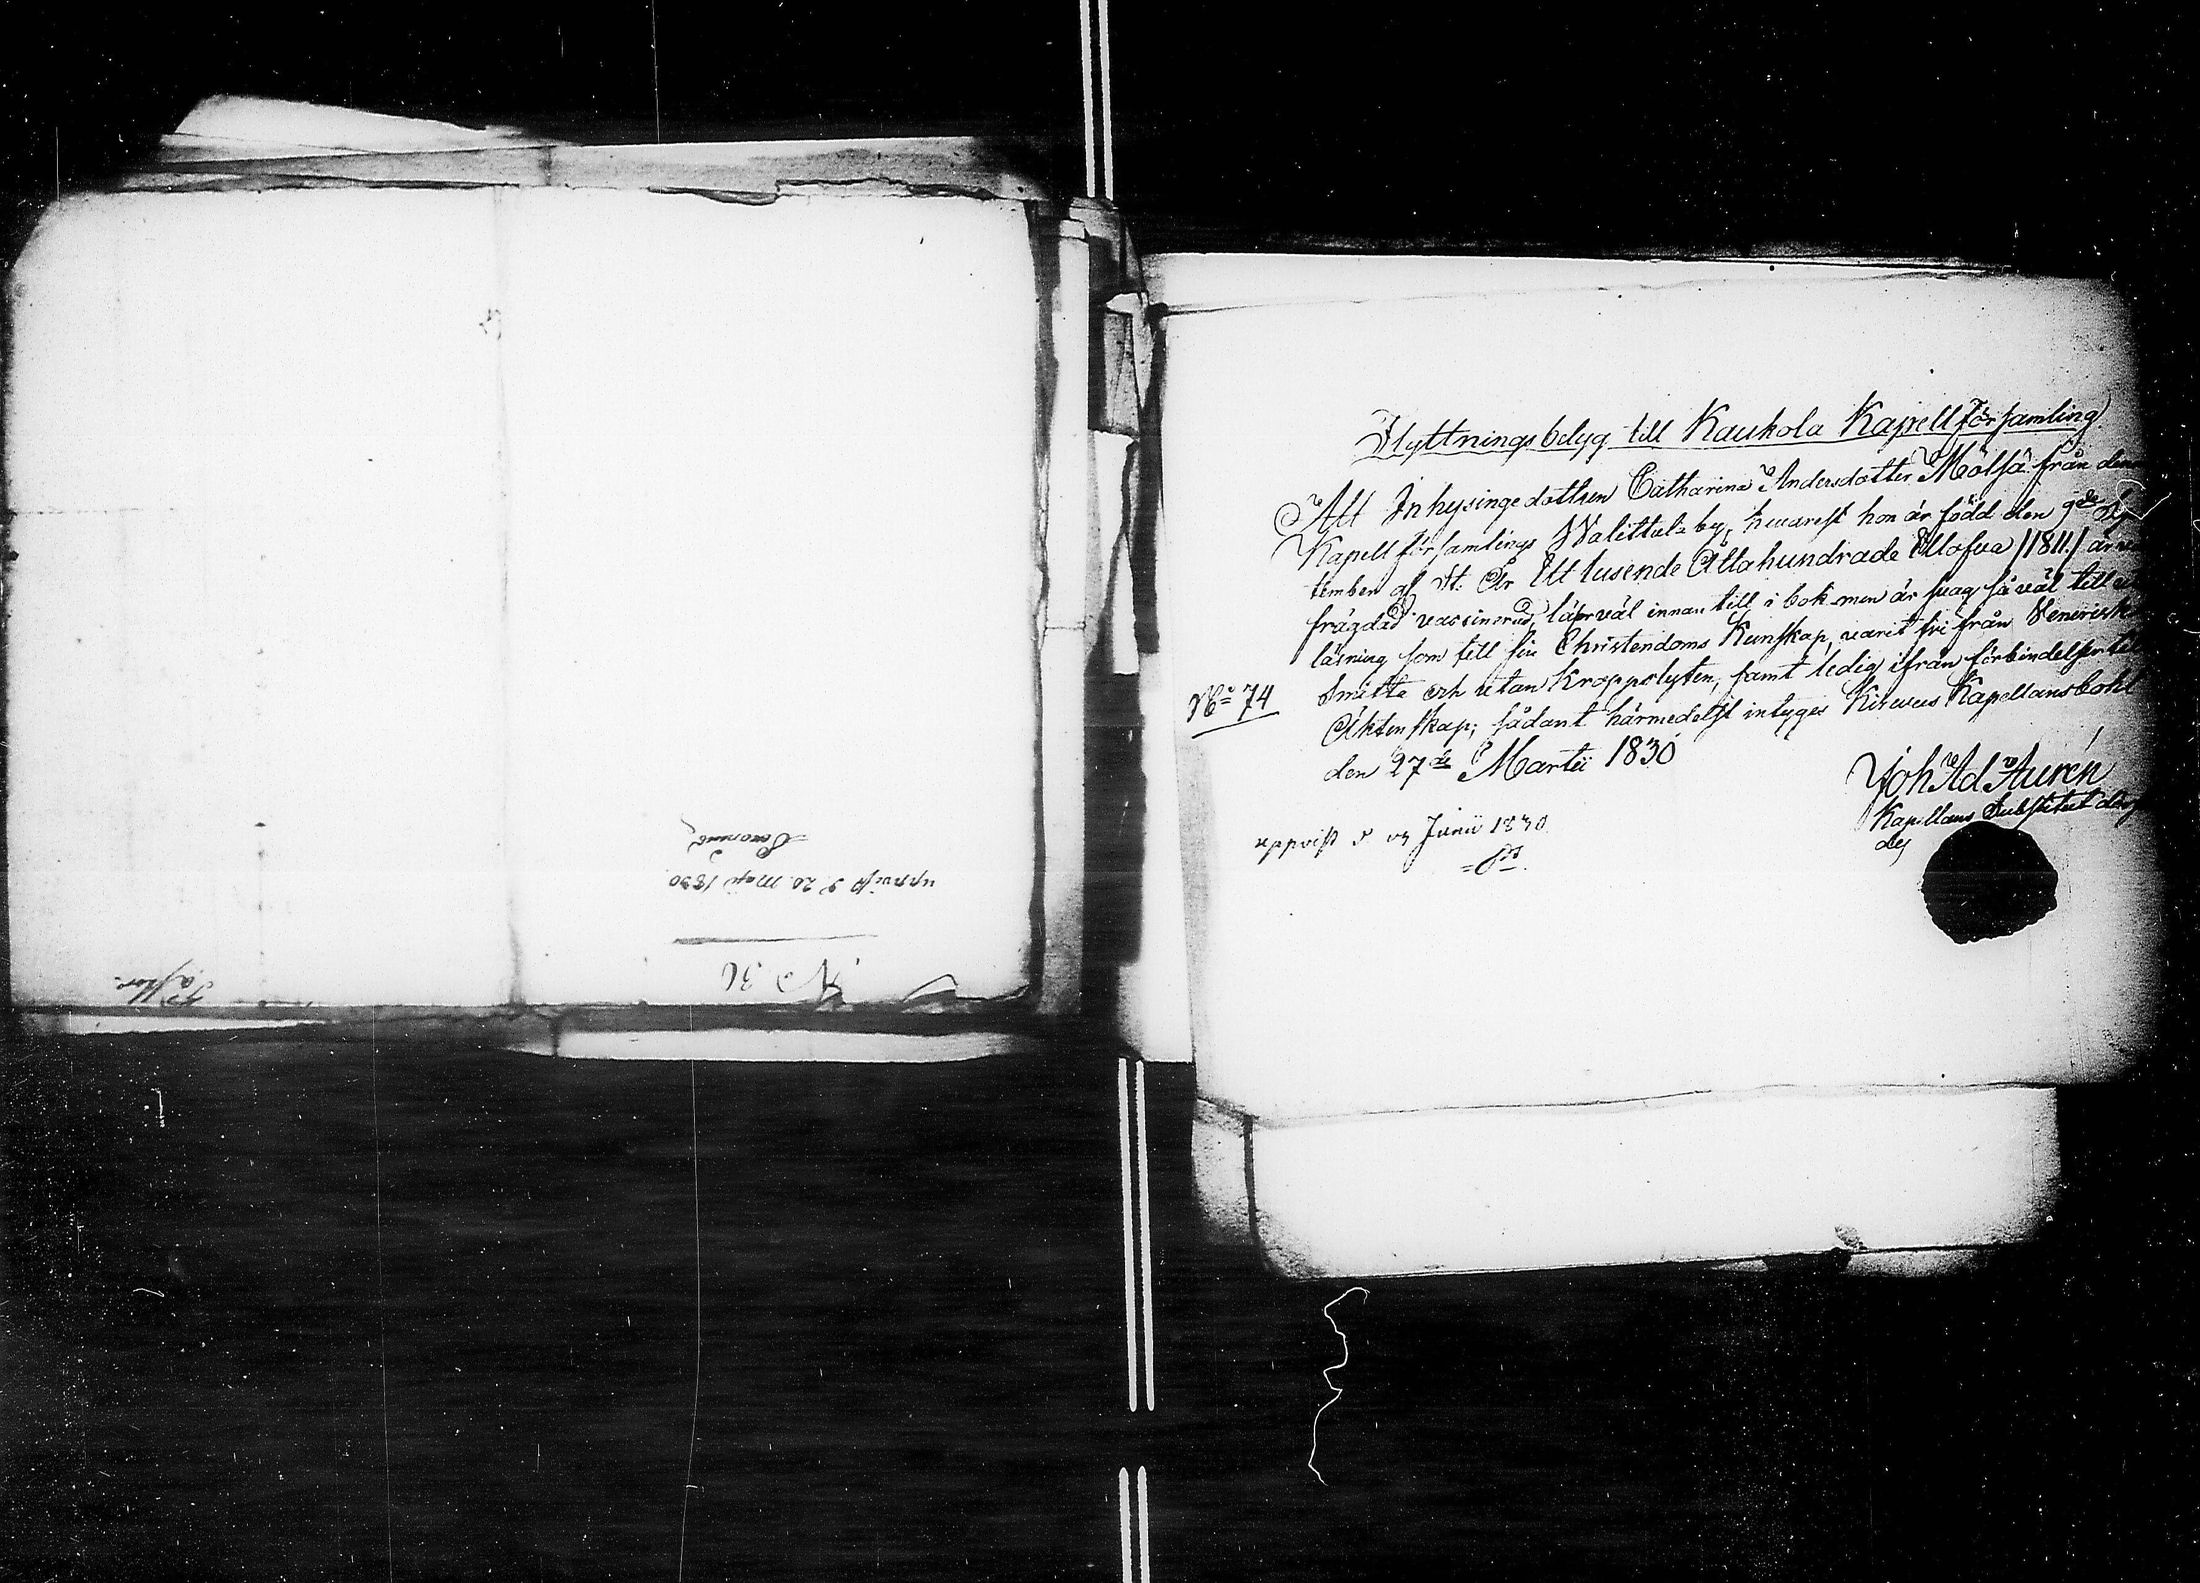 uppvist d. 20 Maji 1830
No 36
Pastor
Flyttningsbetyg till Kaukola Kapellförsamling
Att Inhysingedottren Catharina Andersdotter Mölsä från denna
Kapellförsamlings Walittula by, hvarest hon är född den 9de Sep
tember af St. År Ett tusende Åttahundrade Ellofva /1811./ är
frägdad vaccinerad, läser väl innan till i bok men är svag så väl till
läsning som till sin Christendoms Kunskap, varit fri från Venerisk
Smitta och utan Kroppslyten, samt ledig ifrån förbindelser till
Äktenskap; sådant härmedelst intyges Kirvus Kapellansbohl
den 27de Martii 1830
No 74
Joh Ad Aurén
Kapellans Substitut
uppvist d. 09 Junii 1830